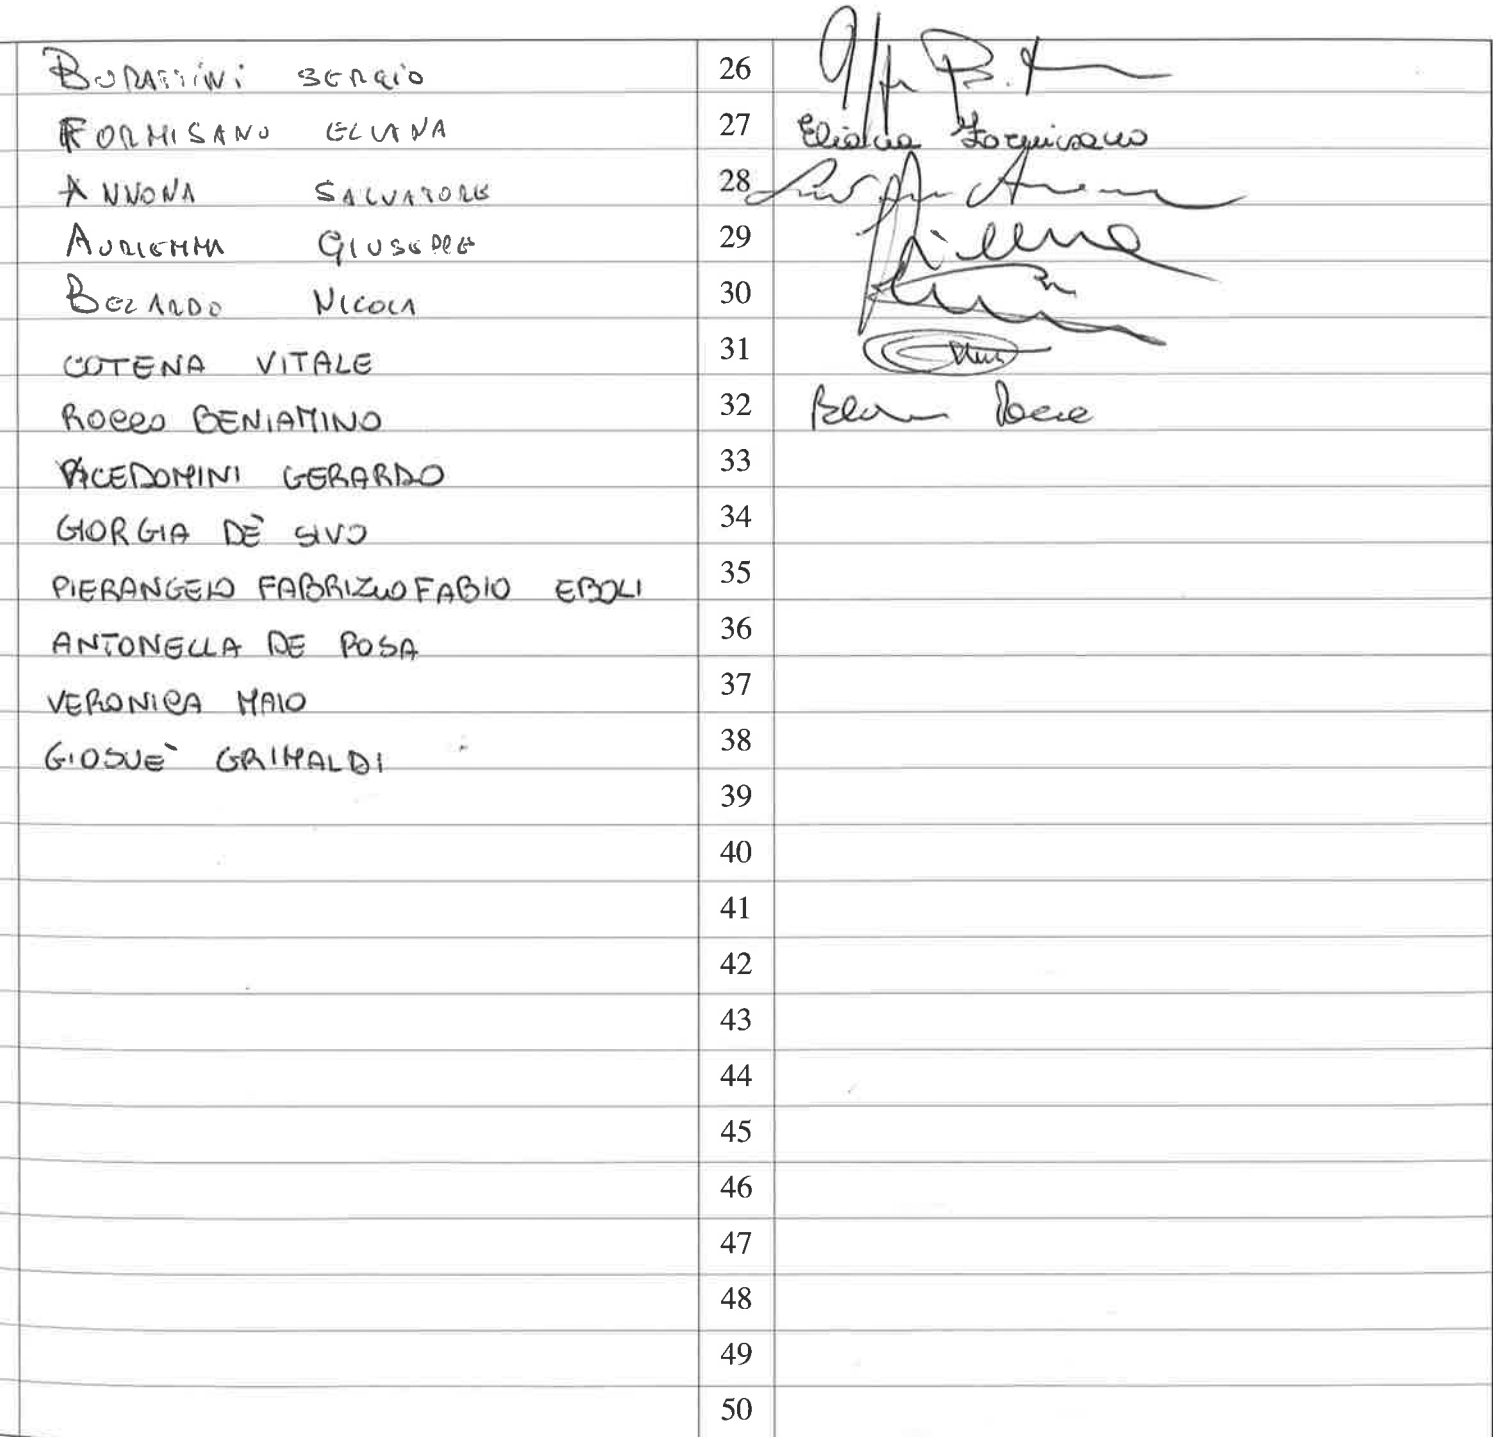 BURATTINI SERGIO 26
FORMISANO ELIANA 27 Eliana Formisano
ANNONA SALVATORE 28
AURIEMMA GIUSEPPE 29
BELARDO NICOLA 30
COTENA VITALE 31
ROCCO BENIAMINO 32
VICEDOMINI GERARDO 33
GIORGIA DÈ SIVO 34
PIERANGELO FABRIZIO FABIO EBOLI 35
ANTONELLA DE ROSA 36
VERONICA MAIO 37
GIOSUÈ GRIMALDI 38
39
40
41
42
43
44
45
46
47
48
49
50